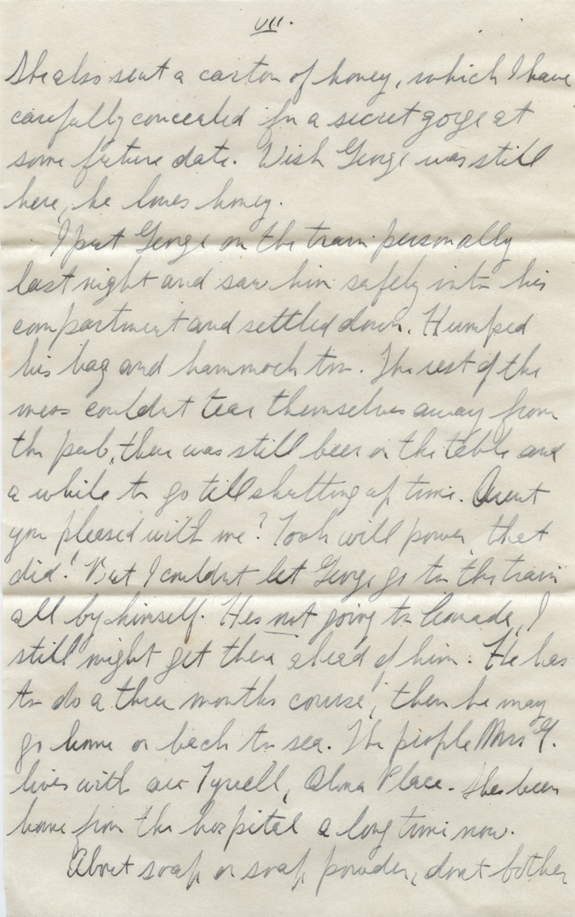 VII.
She also sent a carton of honey, which I have
carefully concealed for a secret gorge at
some future date. Wish George was still
here, he loves honey.
I put George on the train personally
last night and saw him safely into his
compartment and settled down. Humped
his bag and hammock too. The rest of the
mess couldnt tear themselves away from
the pub, there was still beer on the table and
a while to go till shutting up time. Arent
you pleased with me? Took will power, that
did! But I couldnt let George go to the train
all by himself. Hes not going to Canada, I
still might get there ahead of him. He has
to do a three months course, then he may
go home or back to sea. The people Mrs G.
lives with are Tyrell, Alma Place. Shes been
home from the hospital a long time now.
About soap or soap powder, dont bother